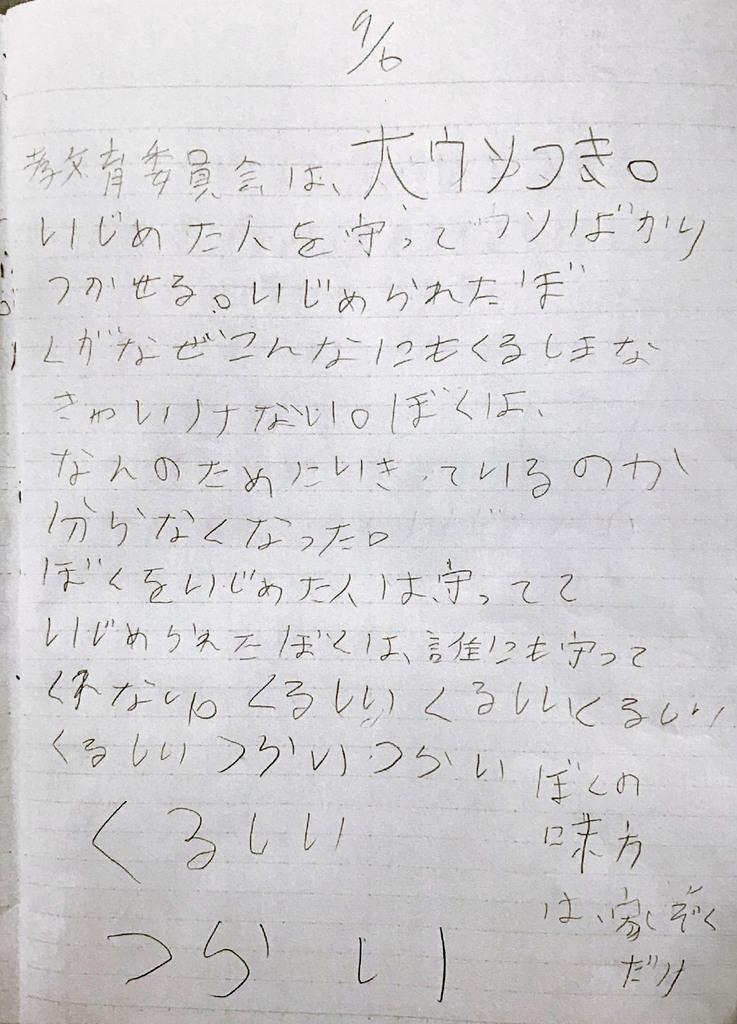 9/6
教育委員会は、大ウソつき。
いじめた人を守ってウソばかり
つかせる。いじめられたぼ
くがなぜこんなにもくるしまな
きゃいけない。ぼくは、
なんのためにいきているのか
分らなくなった。
ぼくをいじめた人は守ってて
いじめられたぼくは、誰にも守って
くれない。くるしいくるしいくるしい
くるしいつらいつらい
くるしい
つらい
ぼくの
味方
は、家ぞく
だけ